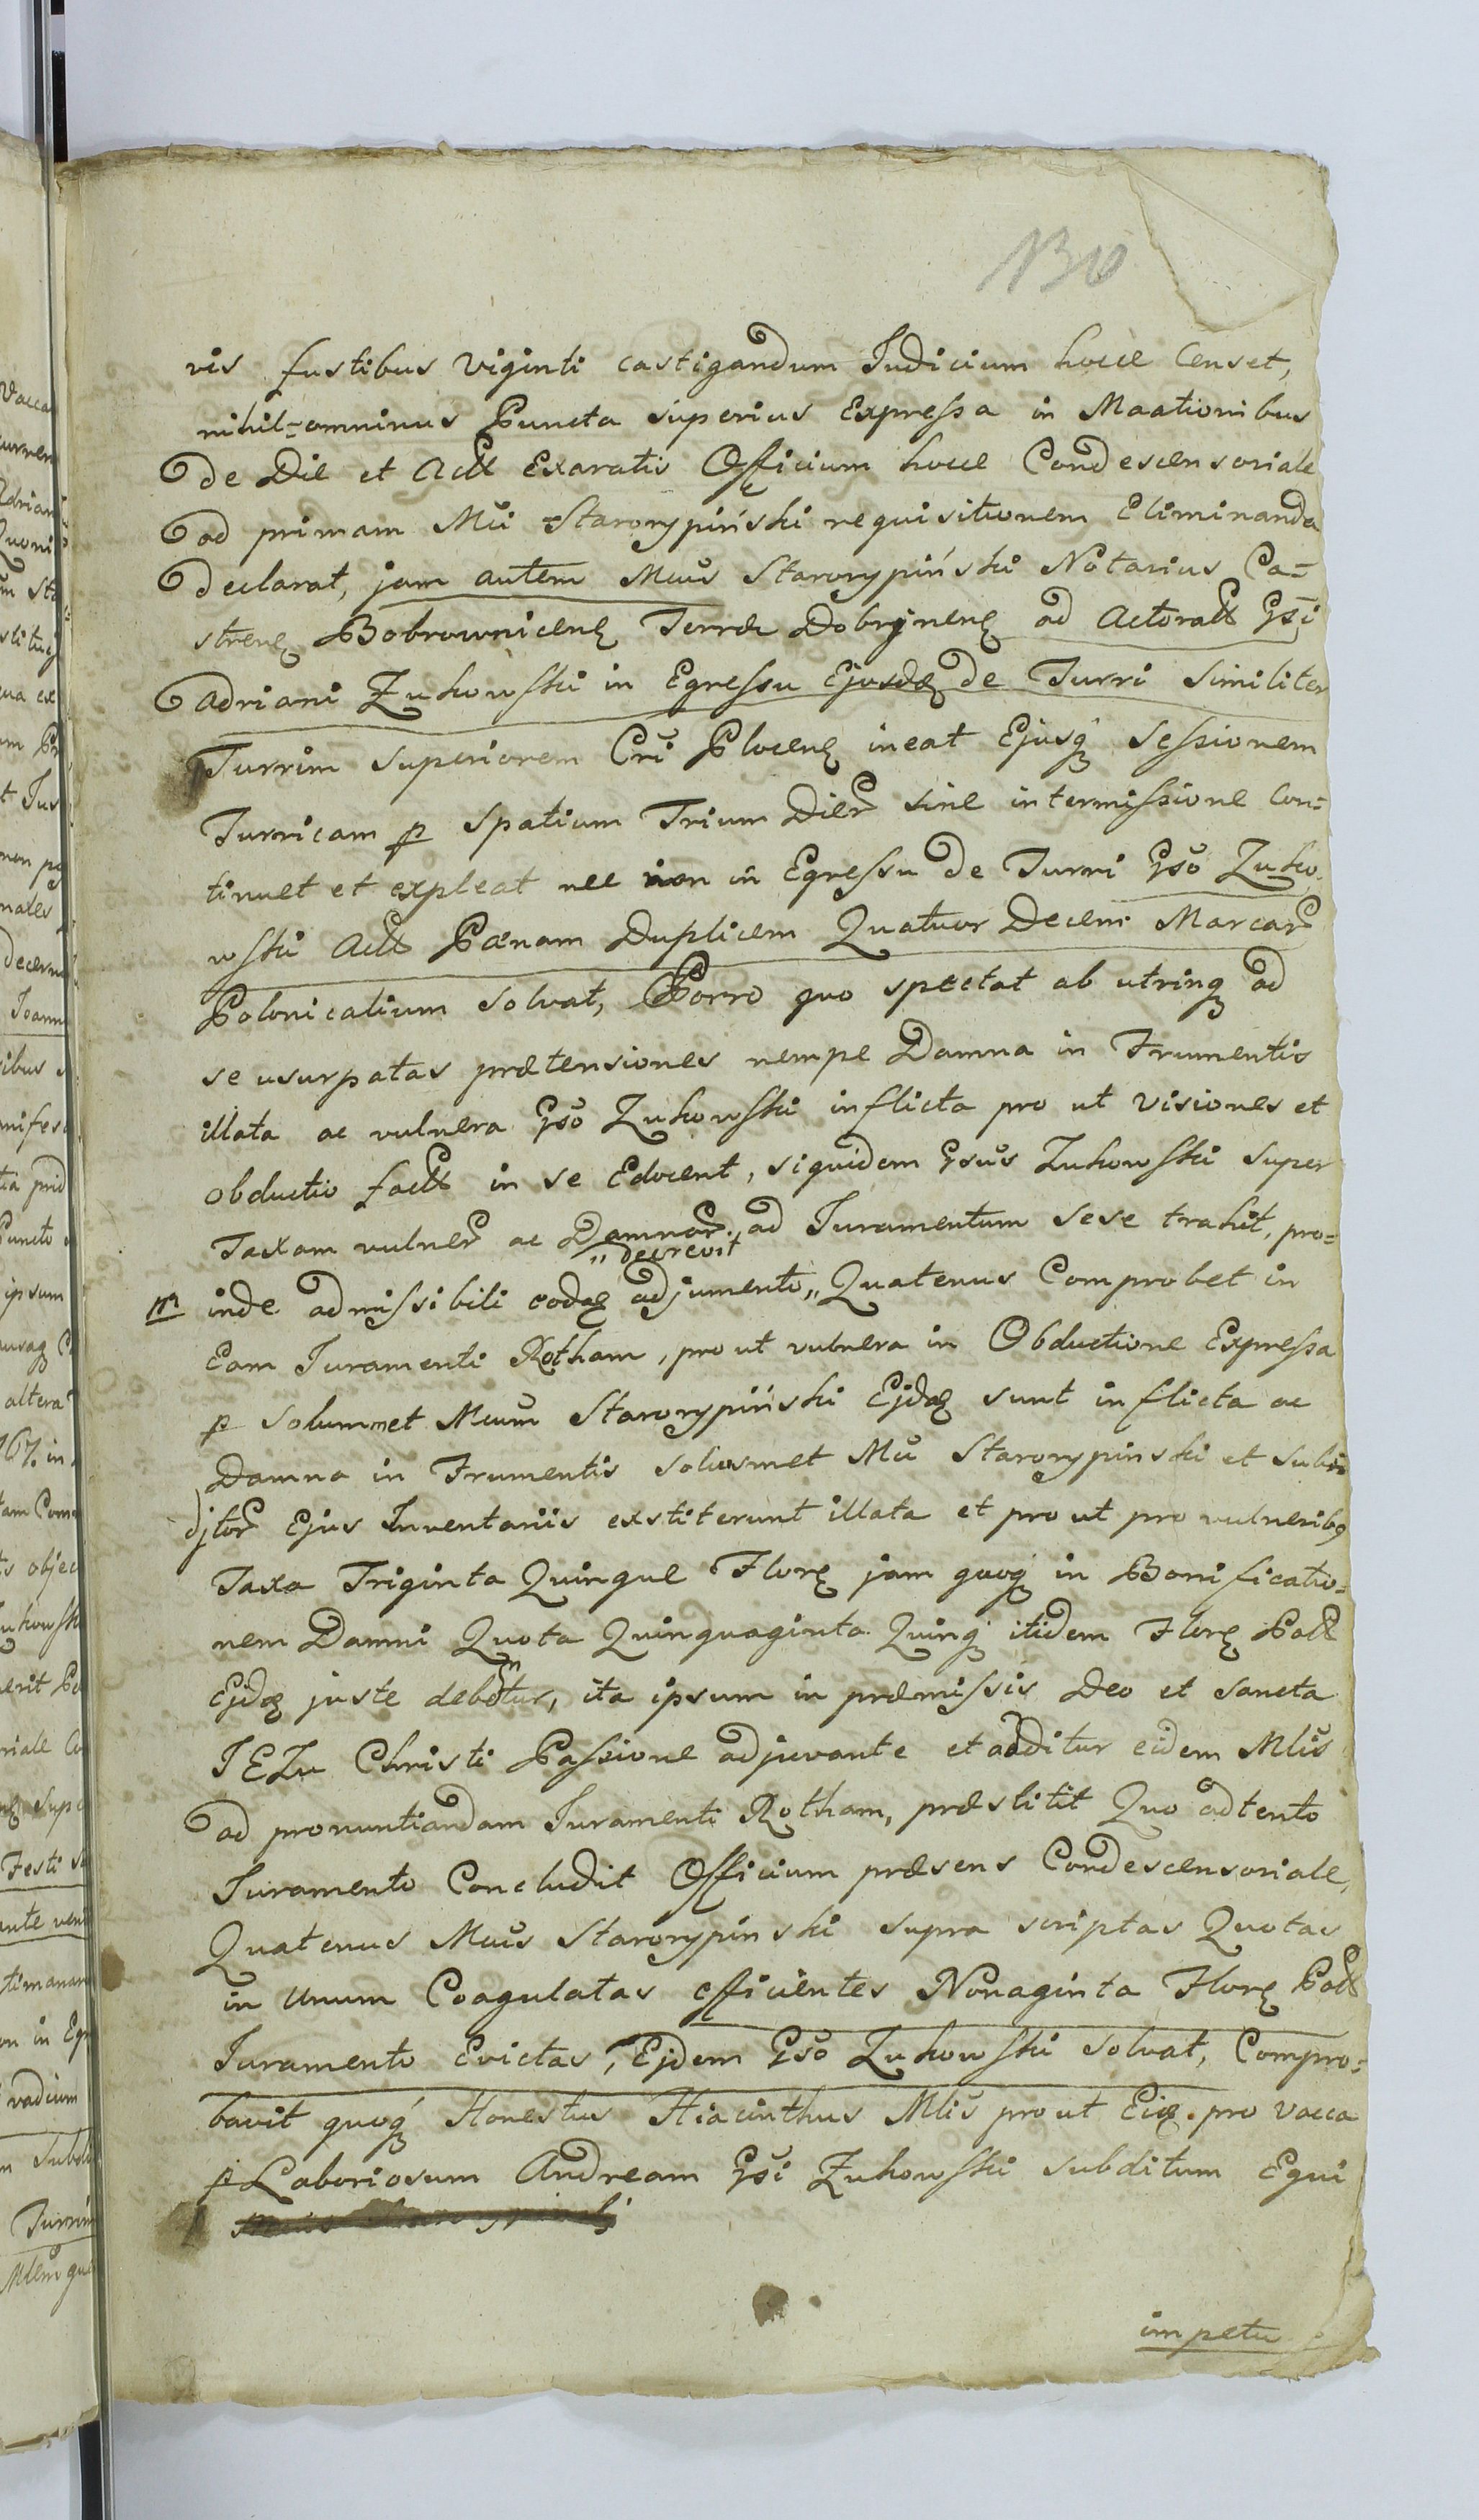 130
vis fustibus viginti castigandum Judicium hocce Censet,
nihil=omninus Puncta superius Expressa in Maationibus
de Die et Actt Exaratis Officium hocce Condescensoriale
ad primam Mŭi Starorypiński requisitionem Eliminanda
declarat, jam autem Muŭs Starorypiński Notarius Ca=
strenę Bobrownicenę Terræ Dobrynenę ad Actoratt Gsi
Adriani Zukowski in Egressu Ejusdę de Turri similiter
Turrim superiorem Cri Plocenę ineat Ejusq sessionem
Turricam p spatium Trium Dier sine intermissione Con=
tinuet et expleat nec non in Egressu de Turri Gso Zuko
wski Actt Pænam Duplicem Quatuor Decem Marcar
Polonicalium solvat, Porro quo spectat ab utrinq ad
se usurpatas prætensiones nempe Damna in Frumentis
illata ac vulnera Gso Zukowski inflicta pro ut visiones et
obductio factt in se Edocent, siquidem Gsus Zukowski super
Taxam vulner ac Damnar ad Juramentum sese trahit, pro=
„decrevit
m inde admissibili eodę adjumento „ Quatenus Comprobet in
Eam Juramenti Rotham, pro ut vulnera in Obductione Expressa
p solummet Muum Starorypiński Ejdę sunt inflicta ac
Damna in Frumentis solusmet Mŭ Starorypinski et subi
djtor Ejus Inventariis exstiterunt illata et pro ut pro vulnerib9
Taxa Triginta Quinque Florę jam quoq in Bonificatio=
nem Damni Quota Quinquaginta Quinq itidem Florę Poll
Ejdę juste debentur, ita ipsum in præmissis Deo et sancta
JEZu Christi Passione adjuvante et additur eidem Mlis
ad pronuntiandam Juramenti Rotham, præstitit Quo adtento
Juramento Concludit Officium præsens Condescensoriale,
Quatenus Muŭs Starorypinski supra scriptas Quotas
in unum Coagulatas efficientes Nonaginta Florę Poll
Juramento Evictas, Ejdem Gso Zukowski solvat, Compro=
bavit quoq Honestus Hiacinthus Mlis pro ut Eię pro vacca
p Laboriosum Andream Gsi Zukowski subditum Equi
impetu